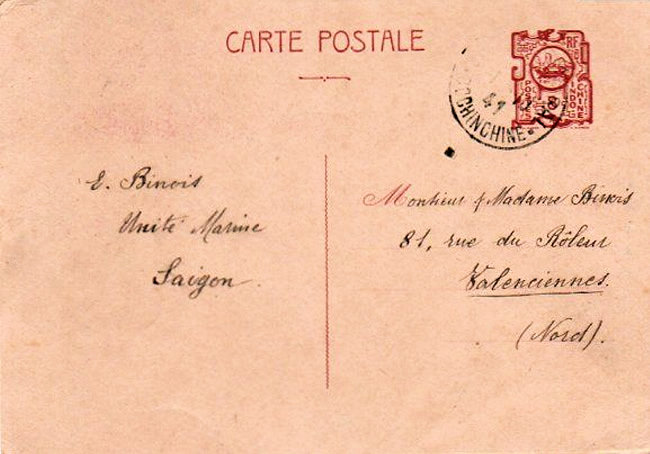 CARTE POSTALE
RF
POSTES
INDO-
CHINE
COCHINCHINE
E. Binois
Unité Marine
Saigon.
Monsieur & Madame Binois
81, rue du Rôleur
Valenciennes.
(Nord).